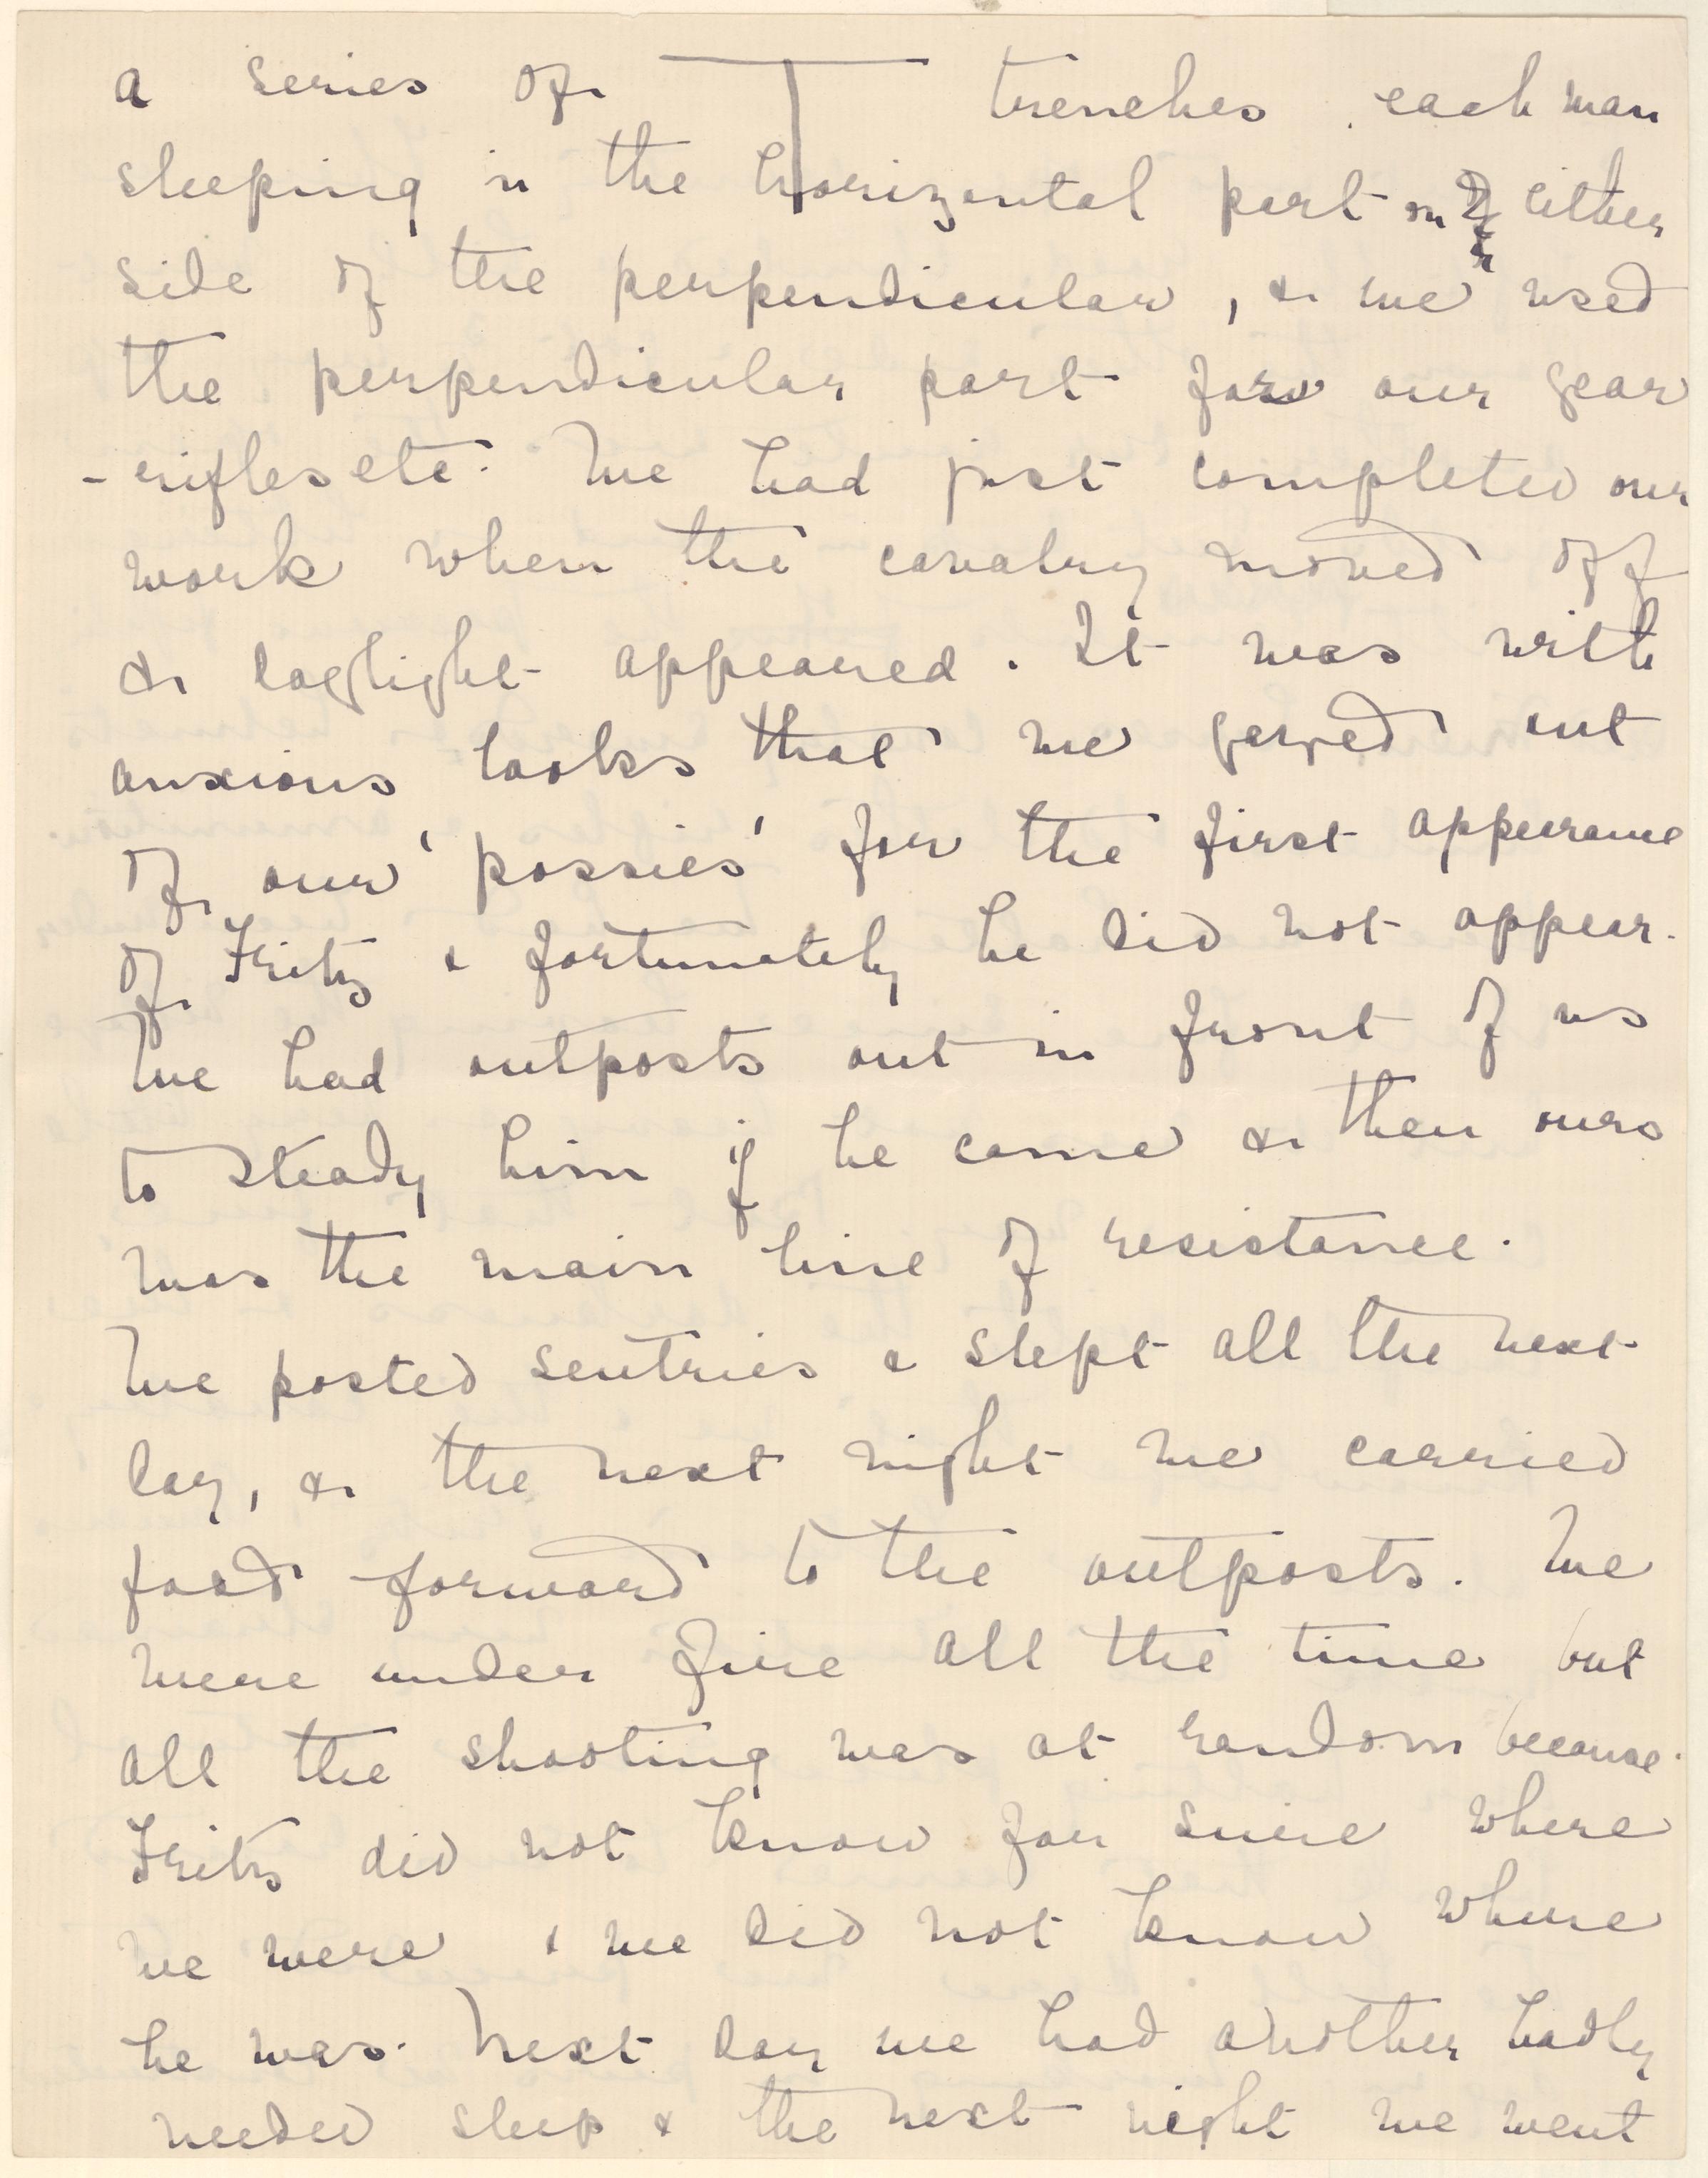 a series of T trenches each man
sleeping in the horizontal part on either
side of the perpendicular, & we used
the perpendicular part for our gear
- rifles etc. We had just completed our
work when the cavalry moved off
& daylight appeared. It was with
anxious looks that we gazed out
of our 'possies' for the first appearance
of Fritz & fortunately he did not appear.
We had outposts out in front of us
to steady him if he came & then ours
was the main line of resistance.
We posted sentries & slept all the next
day, & the next night we carried
food forward to the outposts. We
were under fire all the time but
all the shooting was at random because
Fritz did not know for sure where
we were & we did not know where
he was. Next day we had another badly
needed sleep & the next night we went